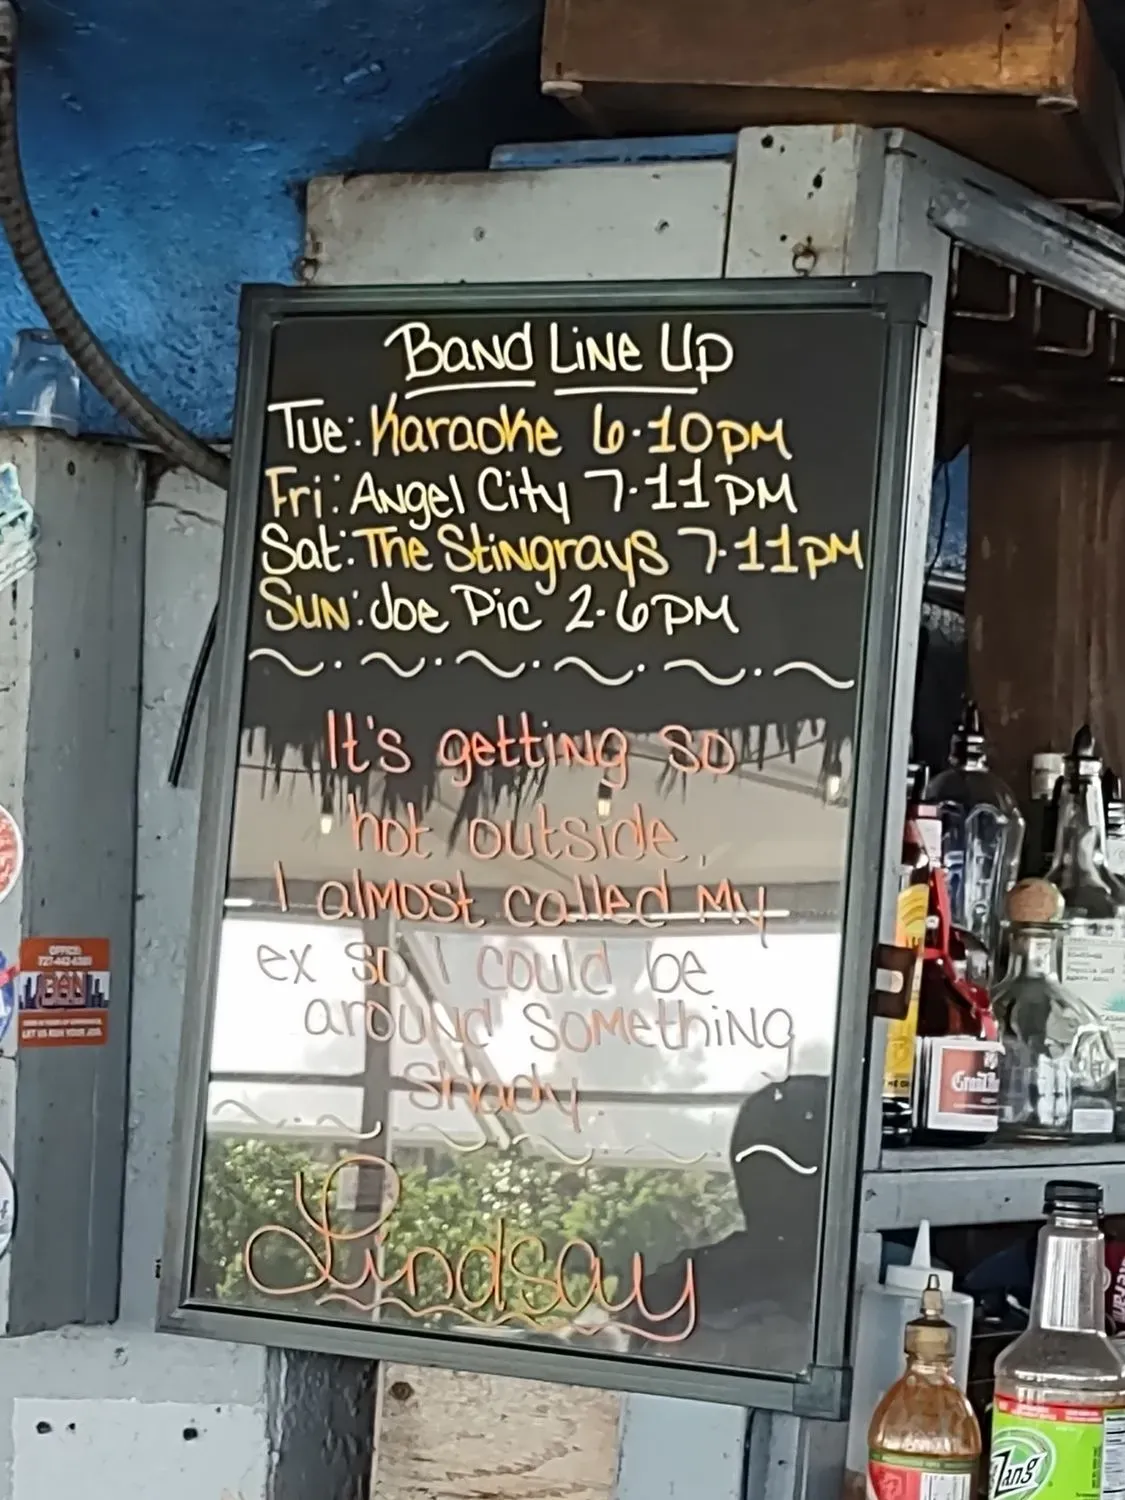 Band Line Up
Tue: Karaoke 6-10PM
Fri: Angel City 7-11PM
Sat: The Stingrays 7-11PM
Sun: Joe Pic 2-6PM
It's getting so
hot outside,
I almost called My
ex so I could be
around something
shady.
Lindsay
OFFICE:
LET US RUN YOUR JOB.
Zang